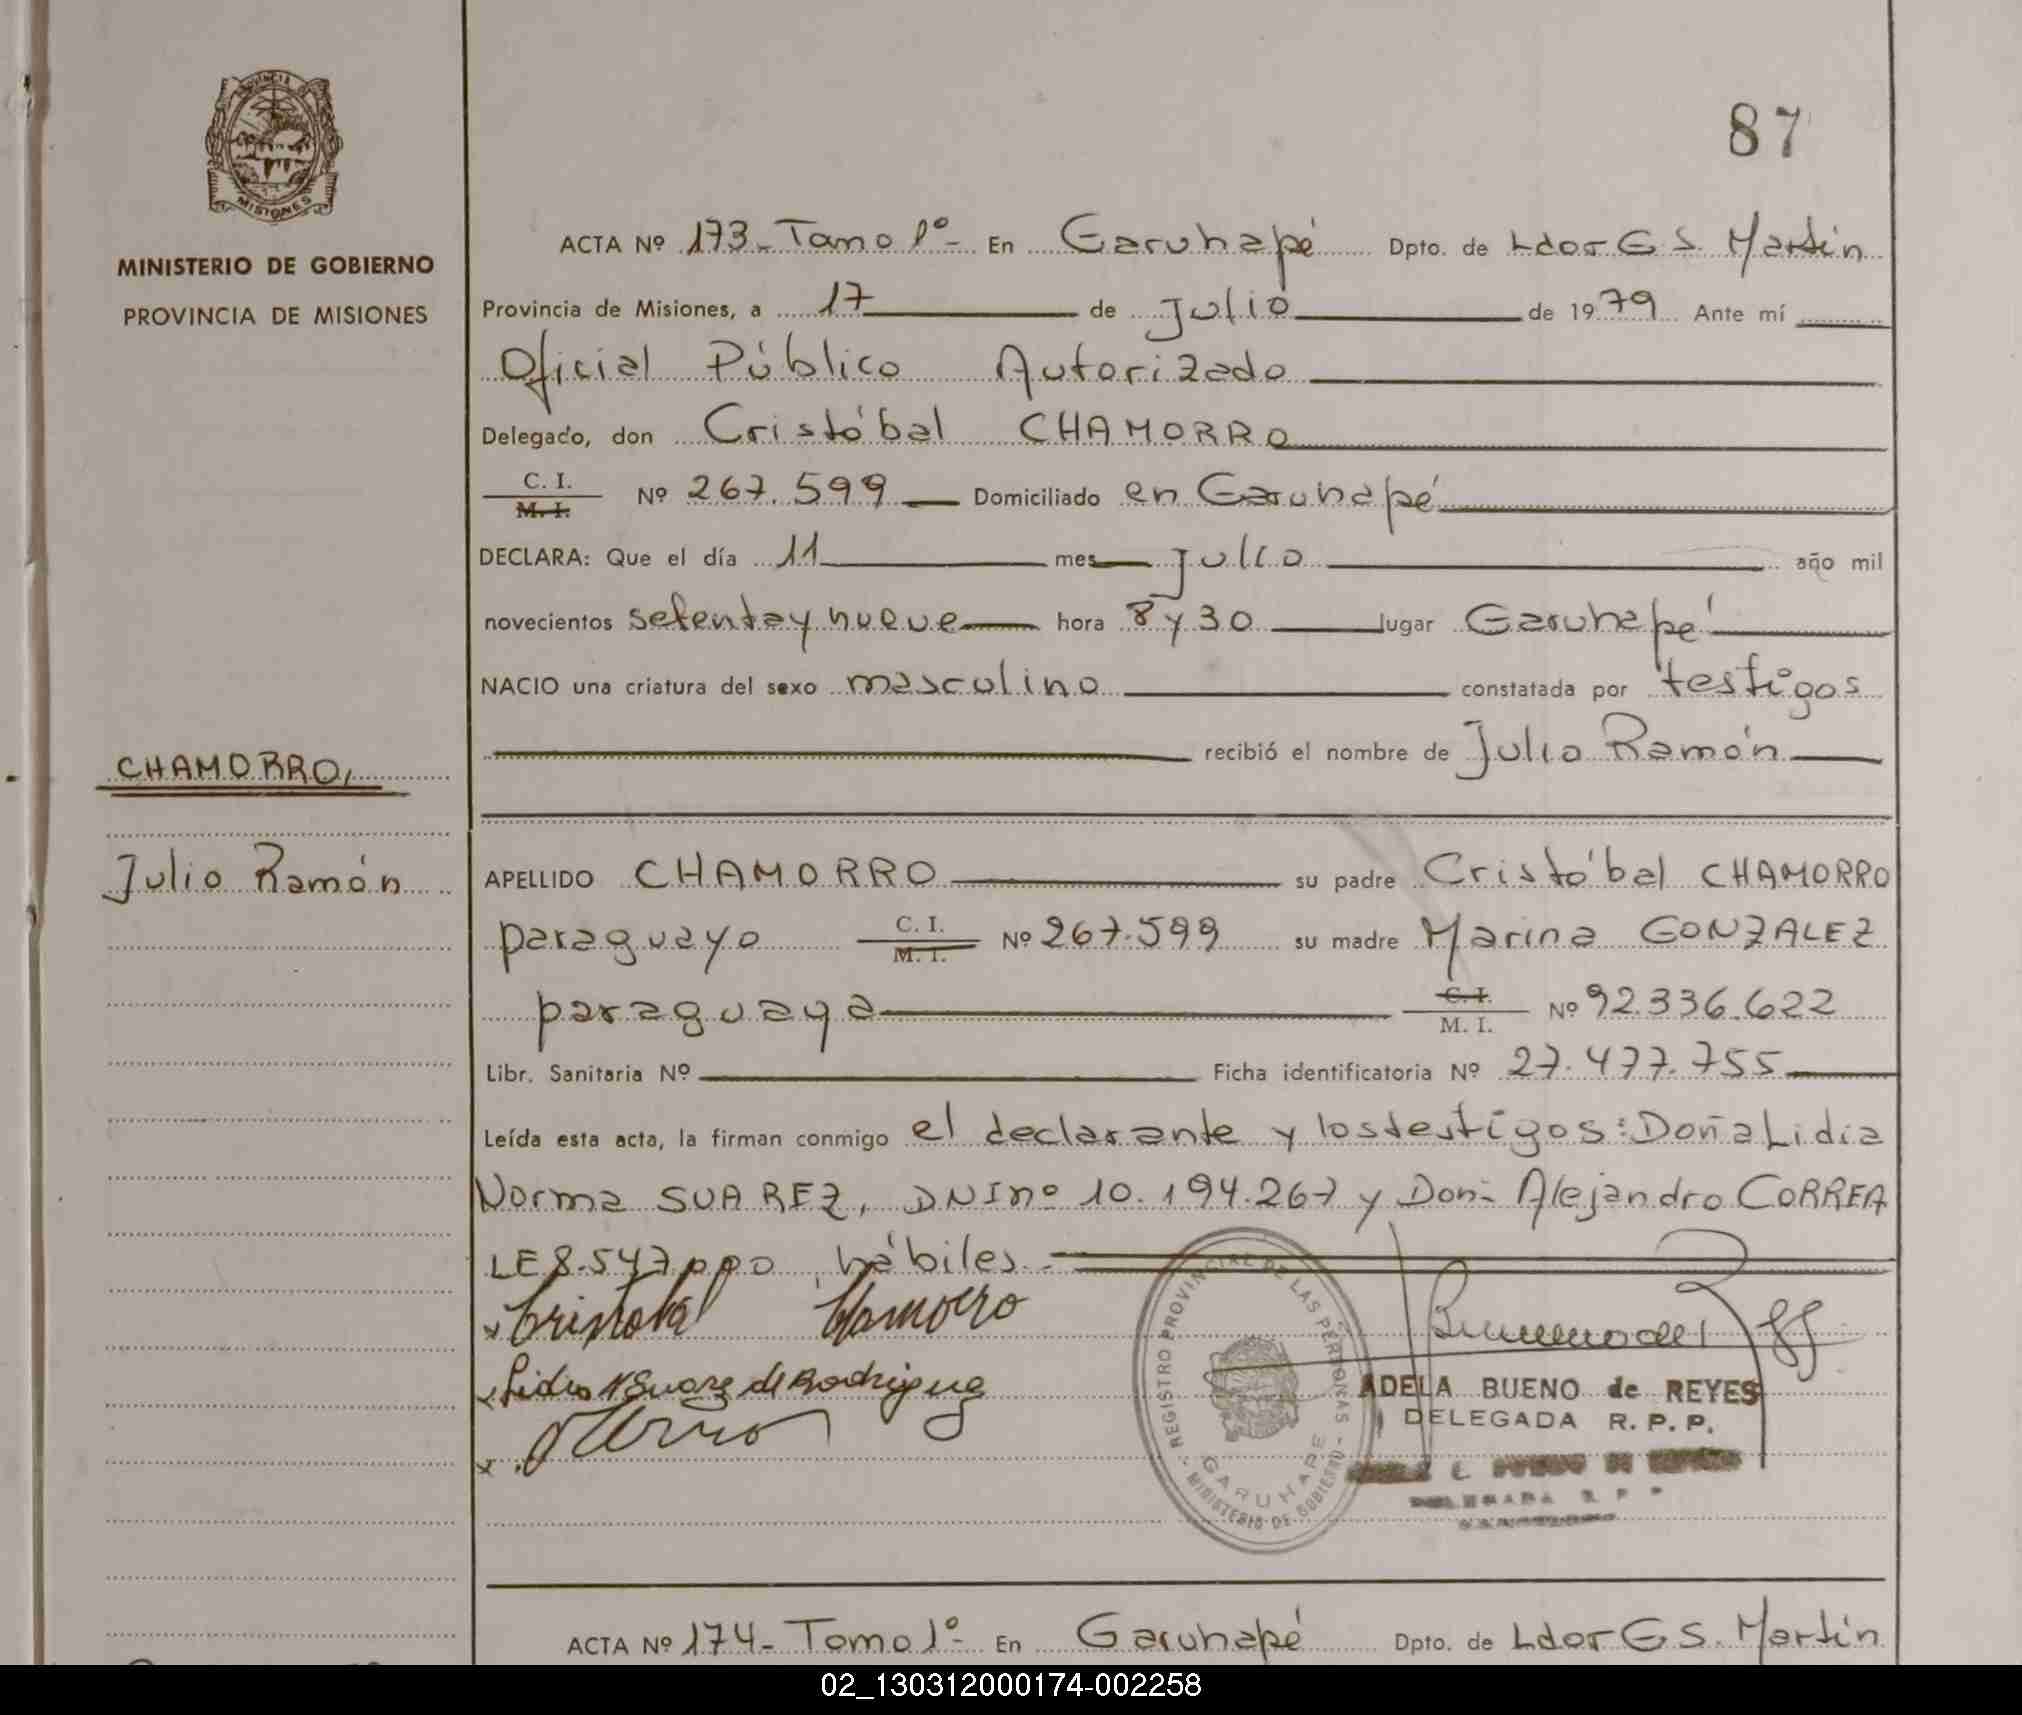 PROVINCIA
MISIONES
MINISTERIO DE GOBIERNO
PROVINCIA DE MISIONES
CHAMORRO,
Julio Ramón
87
ACTA Nº 173- Tomo 1º- En Garuhapé Dpto. de Ldor G S. Martín
Provincia de Misiones, a 17 de Julio de 1979 Ante mí
Oficial Público Autorizado
Delegado, don Cristóbal CHAMORRO
C. I.
M. I. Nº 267.599 Domiciliado en Garuhapé
DECLARA: Que el día 11 mes Julio año mil
novecientos setenta y nueve hora 8 y 30 lugar Garuhapé
NACIO una criatura del sexo masculino constatada por testigos
recibió el nombre de Julio Ramón
APELLIDO CHAMORRO su padre Cristóbal CHAMORRO
paraguayo C. I. M. I. Nº 267.599 su madre Marina GONZALEZ
paraguaya C. I. M. I. Nº 92.336.622
Libr. Sanitaria Nº Ficha identificatoria Nº 27.477.755
Leída esta acta, la firman conmigo el declarante y los testigos: Doña Lidia
Norma SUAREZ, DNI nº 10.194.267 y Don- Alejandro CORREA
LE 8.547.000, hábiles.-
x Cristobal Chamorro
x Lidia N Suarez de Rodriguez
x
REGISTRO PROVINCIAL DE LAS PERSONAS
MINISTERIO DE GOBIERNO
GARUHAPE
ADELA BUENO de REYES
DELEGADA R. P. P.
DELEGADA R P P
ACTA Nº 174- Tomo 1º- En Garuhapé Dpto. de Ldor G S. Martín
02_130312000174-002258